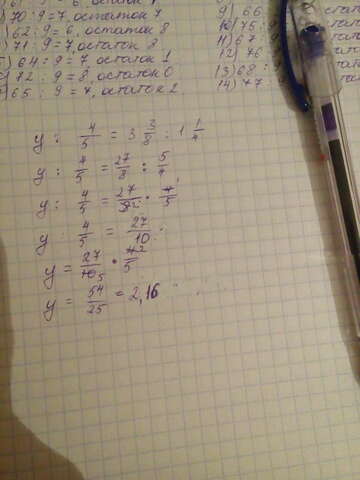 70:9=7, остаток 7
62:9=6, остаток 8
71:9=7, остаток 8
64:9=7, остаток 1
72:9=8, остаток 0
65:9=7, остаток 2
9) 66
10) 75:9
11) 67:9
12) 76
13) 68:
14) 77:
y : 4/5 = 3 3/8 : 1 1/4
y : 4/5 = 27/8 : 5/4
y : 4/5 = 27/8 2 · 4 1/5
y : 4/5 = 27/10 :
y = 27/10 5 · 4 2/5
y = 54/25 = 2,16